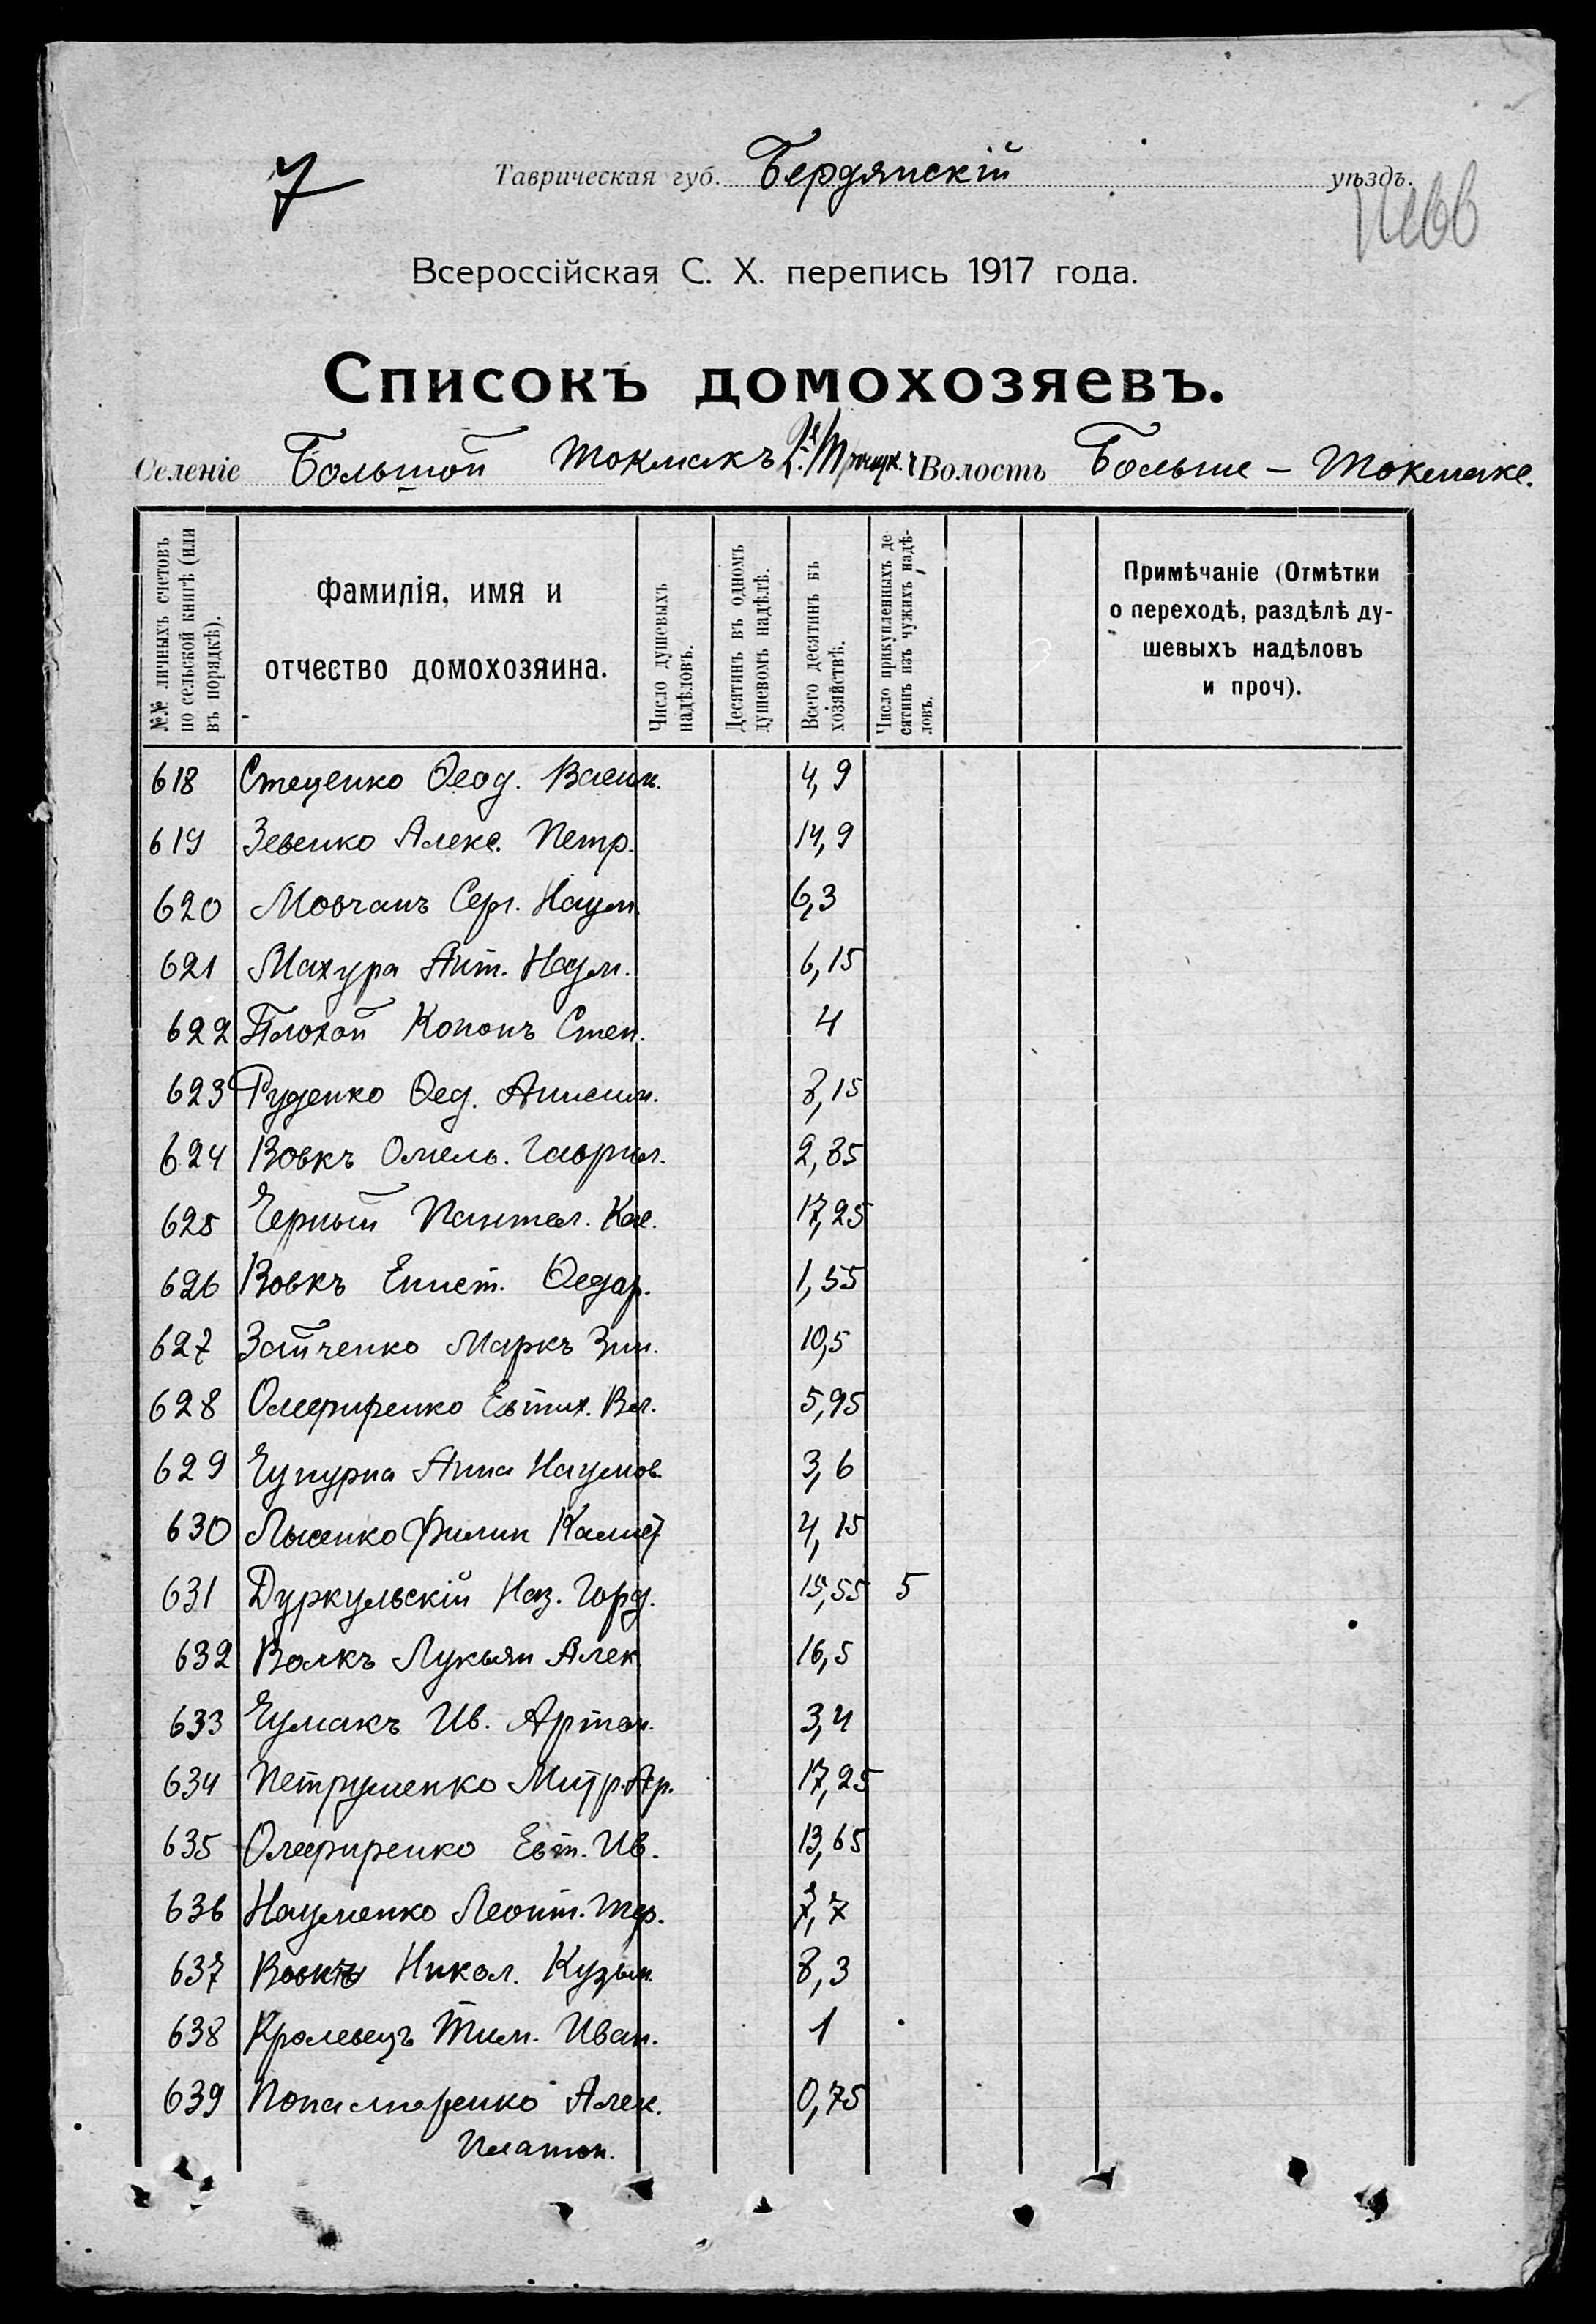 7
Таврическая губ. Бердянскій уѣздъ.
Всероссійская С. Х. перепись 1917 года.
Списокъ домохозяевъ.
Селеніе Большой Токмакъ Волость Больше – Токмакс.
№№ личныхъ счетовъ по сельской книгѣ (или въ порядкѣ).
Фамилія, имя и отчество домохозяина.
Число душевыхъ надѣловъ.
Десятинъ въ одномъ душевомъ надѣлѣ.
Всего десятинъ въ хозяйствѣ.
Число прикупленныхъ десятинъ изъ чужихъ надѣловъ.
Примѣчаніе (Отмѣтки о переходѣ, раздѣлѣ душевыхъ надѣловъ и проч).
618 Стеценко Ѳеод. Васил. 4,9
619 Зевенко Алекс. Петр. 14,9
620 Мовчанъ Серг. Наум. 6,3
621 Махура Ант. Наум. 6,15
622 Плохой Кононъ Степ. 4
623 Руденко Ѳед. Анисим. 8,15
624 Вовкъ Омель. Гаврил. 2,85
625 Черный Пантел. Кас. 17,25
626 Вовкъ Епист. Ѳедор. 1,55
627 Зайченко Маркъ Зин. 10,5
628 Олефиренко Евтих. Вас. 5,95
629 Чупурна Анна Наумов. 3,6
630 Лысенко Филип Калист 4,15
631 Дуркульскій Наз. Горд. 15,55 5
632 Волкъ Лукьян Алек. 16,5
633 Чумакъ Ив. Артам. 3,4
634 Петруменко Митр. Ар. 17,25
635 Олефиренко Евт. Ив. 13,65
636 Науменко Леонт. 7,7
637 Никол. Кузьм. 8,3
638 Кролевецъ Тим. Иван. 1
639 Попамаренко Алек. 0,75
Платон.